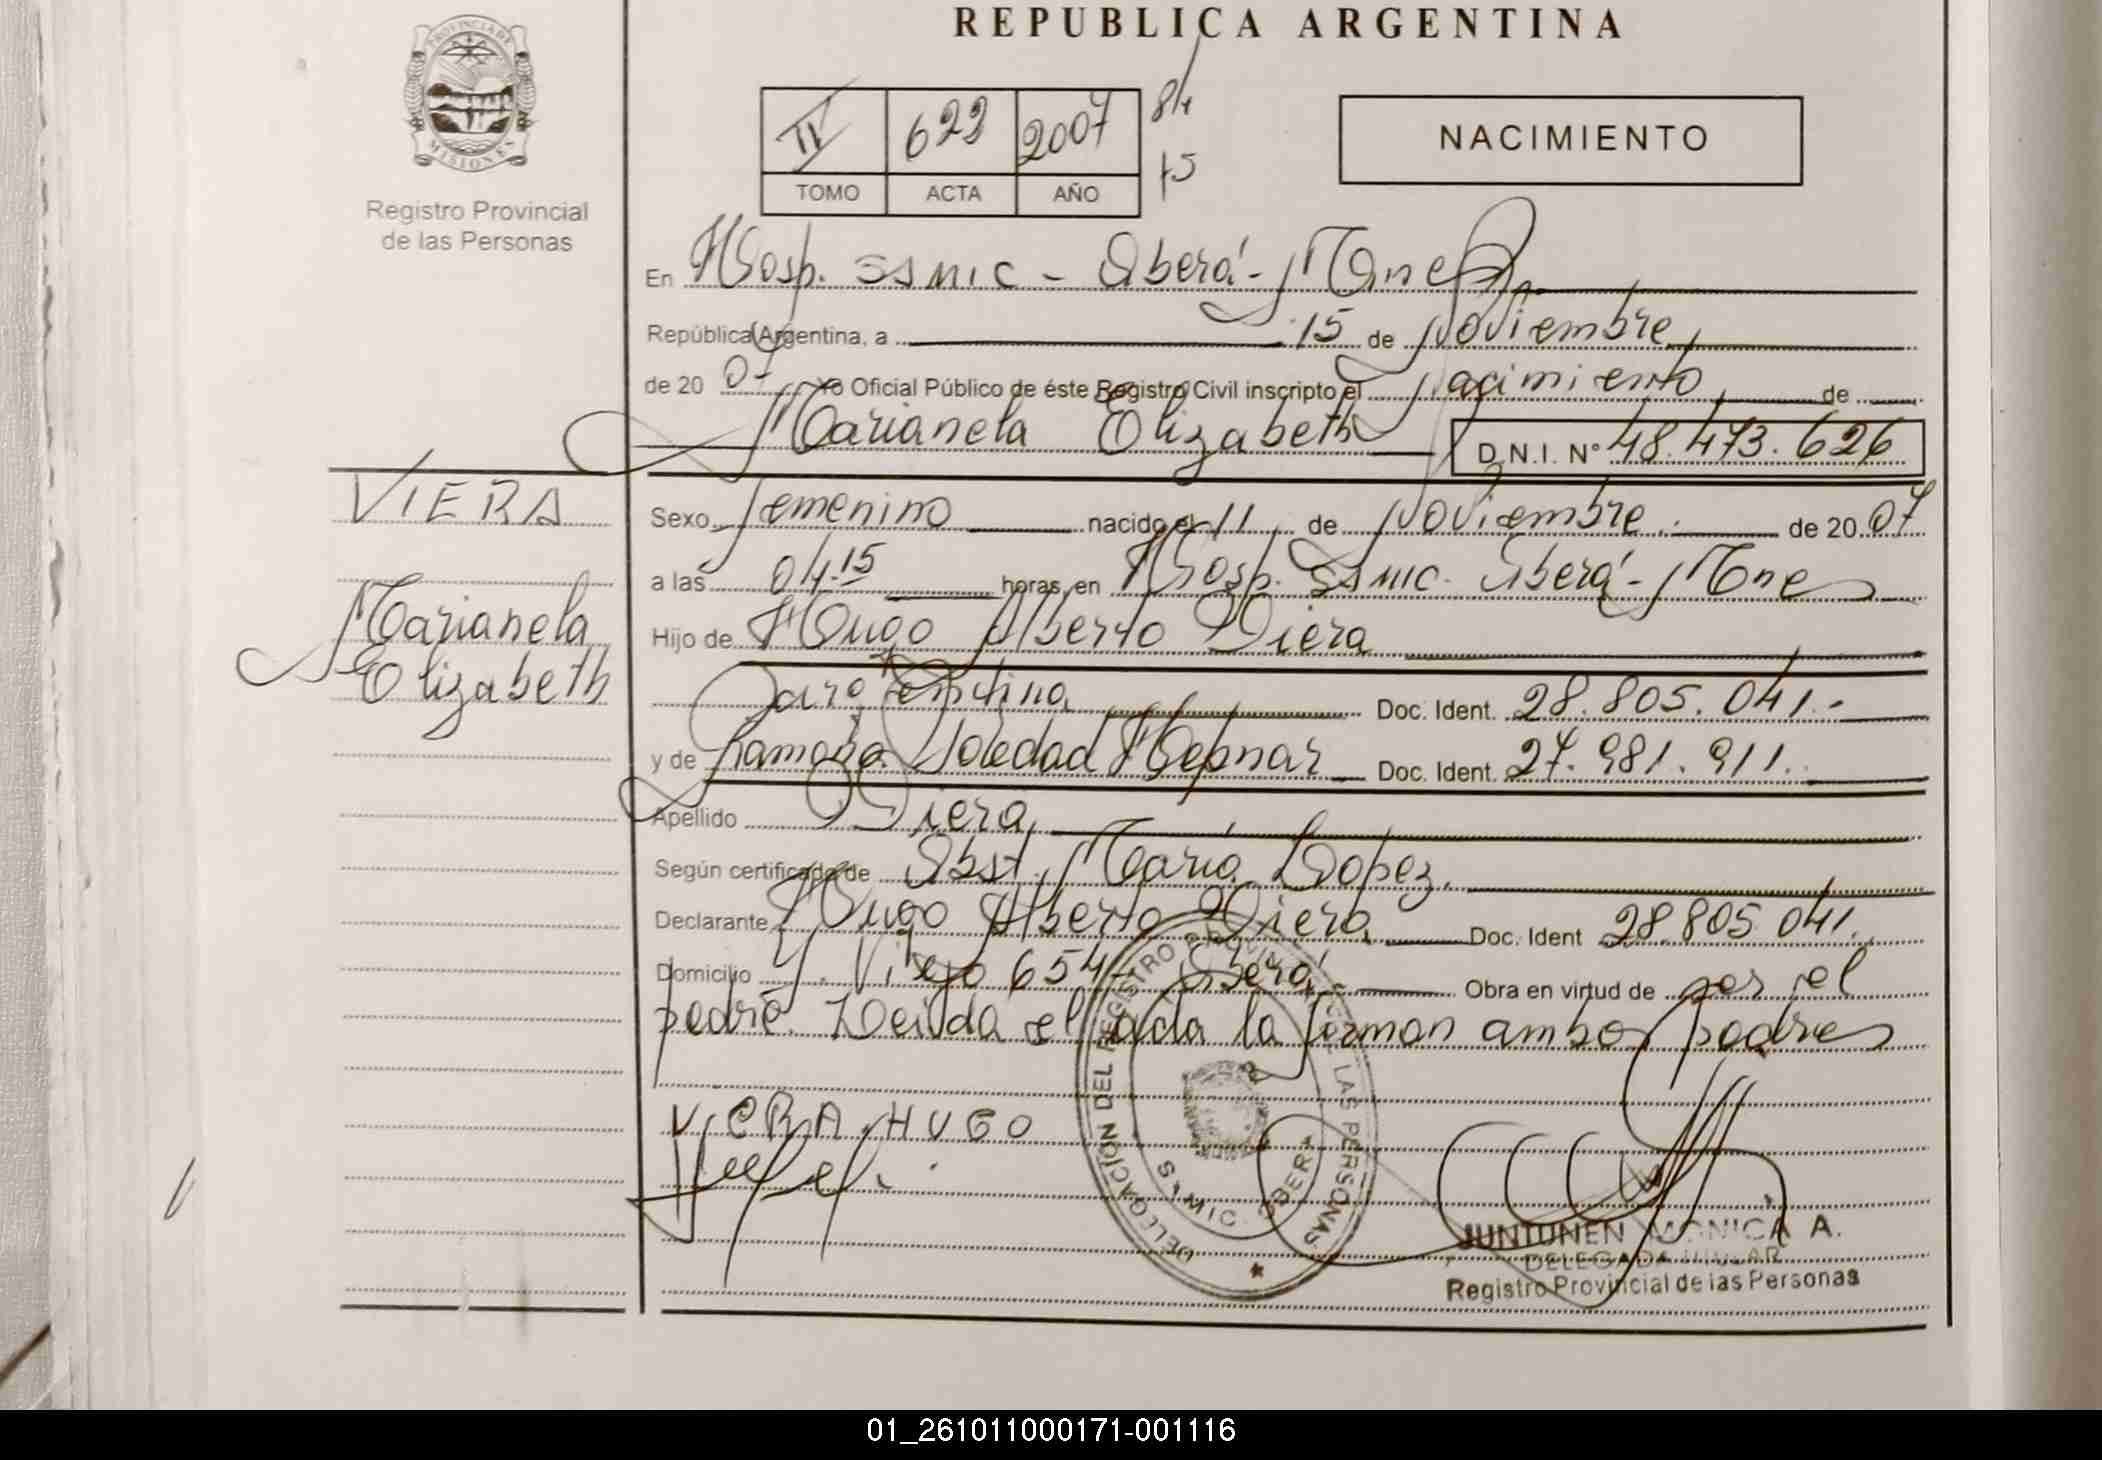 REPUBLICA ARGENTINA
PROVINCIA DE
MISIONES
Registro Provincial
de las Personas
II 622 2007
TOMO ACTA AÑO
84
15
NACIMIENTO
En Hosp. SSMIC - Oberá - Mnes
República Argentina, a 15 de Noviembre
de 20 07 Yo Oficial Público de éste Registro Civil inscripto el Nacimiento de
Marianela Elizabeth D.N.I. Nº 48.473.626
VIERA
Marianela
Elizabeth
Sexo femenino nacido el 11 de Noviembre de 20 07
a las 04.15 horas, en Hosp. SSMIC. Oberá - Mnes
Hijo de Hugo Alberto Viera
argentina Doc. Ident. 28.805.041.-
y de Ramona Soledad Hepnar Doc. Ident. 27.981.911.
Apellido Viera
Según certificado de Obst. María Lopez.
Declarante Hugo Alberto Viera Doc. Ident 28.805.041.
Domicilio Y. Viejo 654 - Oberá Obra en virtud de ser el
padre. Leída el acta la firman ambos padres
VIERA HUGO
DELEGACIÓN DEL REGISTRO PROVINCIAL DE LAS PERSONAS
S.S.MIC. OBERA
JUNTUNEN MONICA A.
DELEGADA TITULAR
Registro Provincial de las Personas
01_261011000171-001116